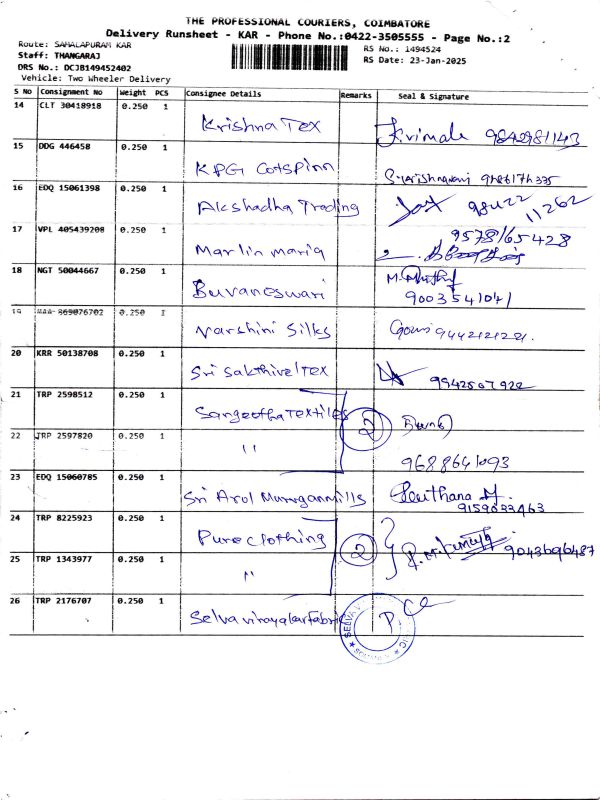 THE PROFESSIONAL COURIERS, COIMBATORE
Delivery Runsheet - KAR - Phone No.:0422-3505555 - Page No.:2
Route: SAMALAPURAM KAR
RS No.: 1494524
Staff: THANGARAJ
RS Date: 23-Jan-2025
DRS No.: DCJB149452402
Vehicle: Two Wheeler Delivery
S No Consignment No Weight PCS Consignee Details Remarks Seal & Signature
14 CLT 30418918 0.250 1 Krishna Tex 9842981143
15 DDG 446458 0.250 1 KPG Cotspinn
16 EDQ 15061398 0.250 1 Akshadha Trading 98422 11262
17 VPL 405439208 0.250 1 Marlin maria 9578165428
18 NGT 50044667 0.250 1 Buvaneswari 9003541041
19 369076702 0.250 1 Varshini Silks Gowri
20 KRR 50138708 0.250 1 Sri Sakthivel Tex
21 TRP 2598512 0.250 1 Sangeetha Textiles 2
22 TRP 2597820 0.250 1 " 9688641093
23 EDQ 15060785 0.250 1 Sri Arol Murugan mills
24 TRP 8225923 0.250 1 Pure clothing 2 9043696487
25 TRP 1343977 0.250 1 "
26 TRP 2176707 0.250 1 Selva vinayakar fabric
SELVA